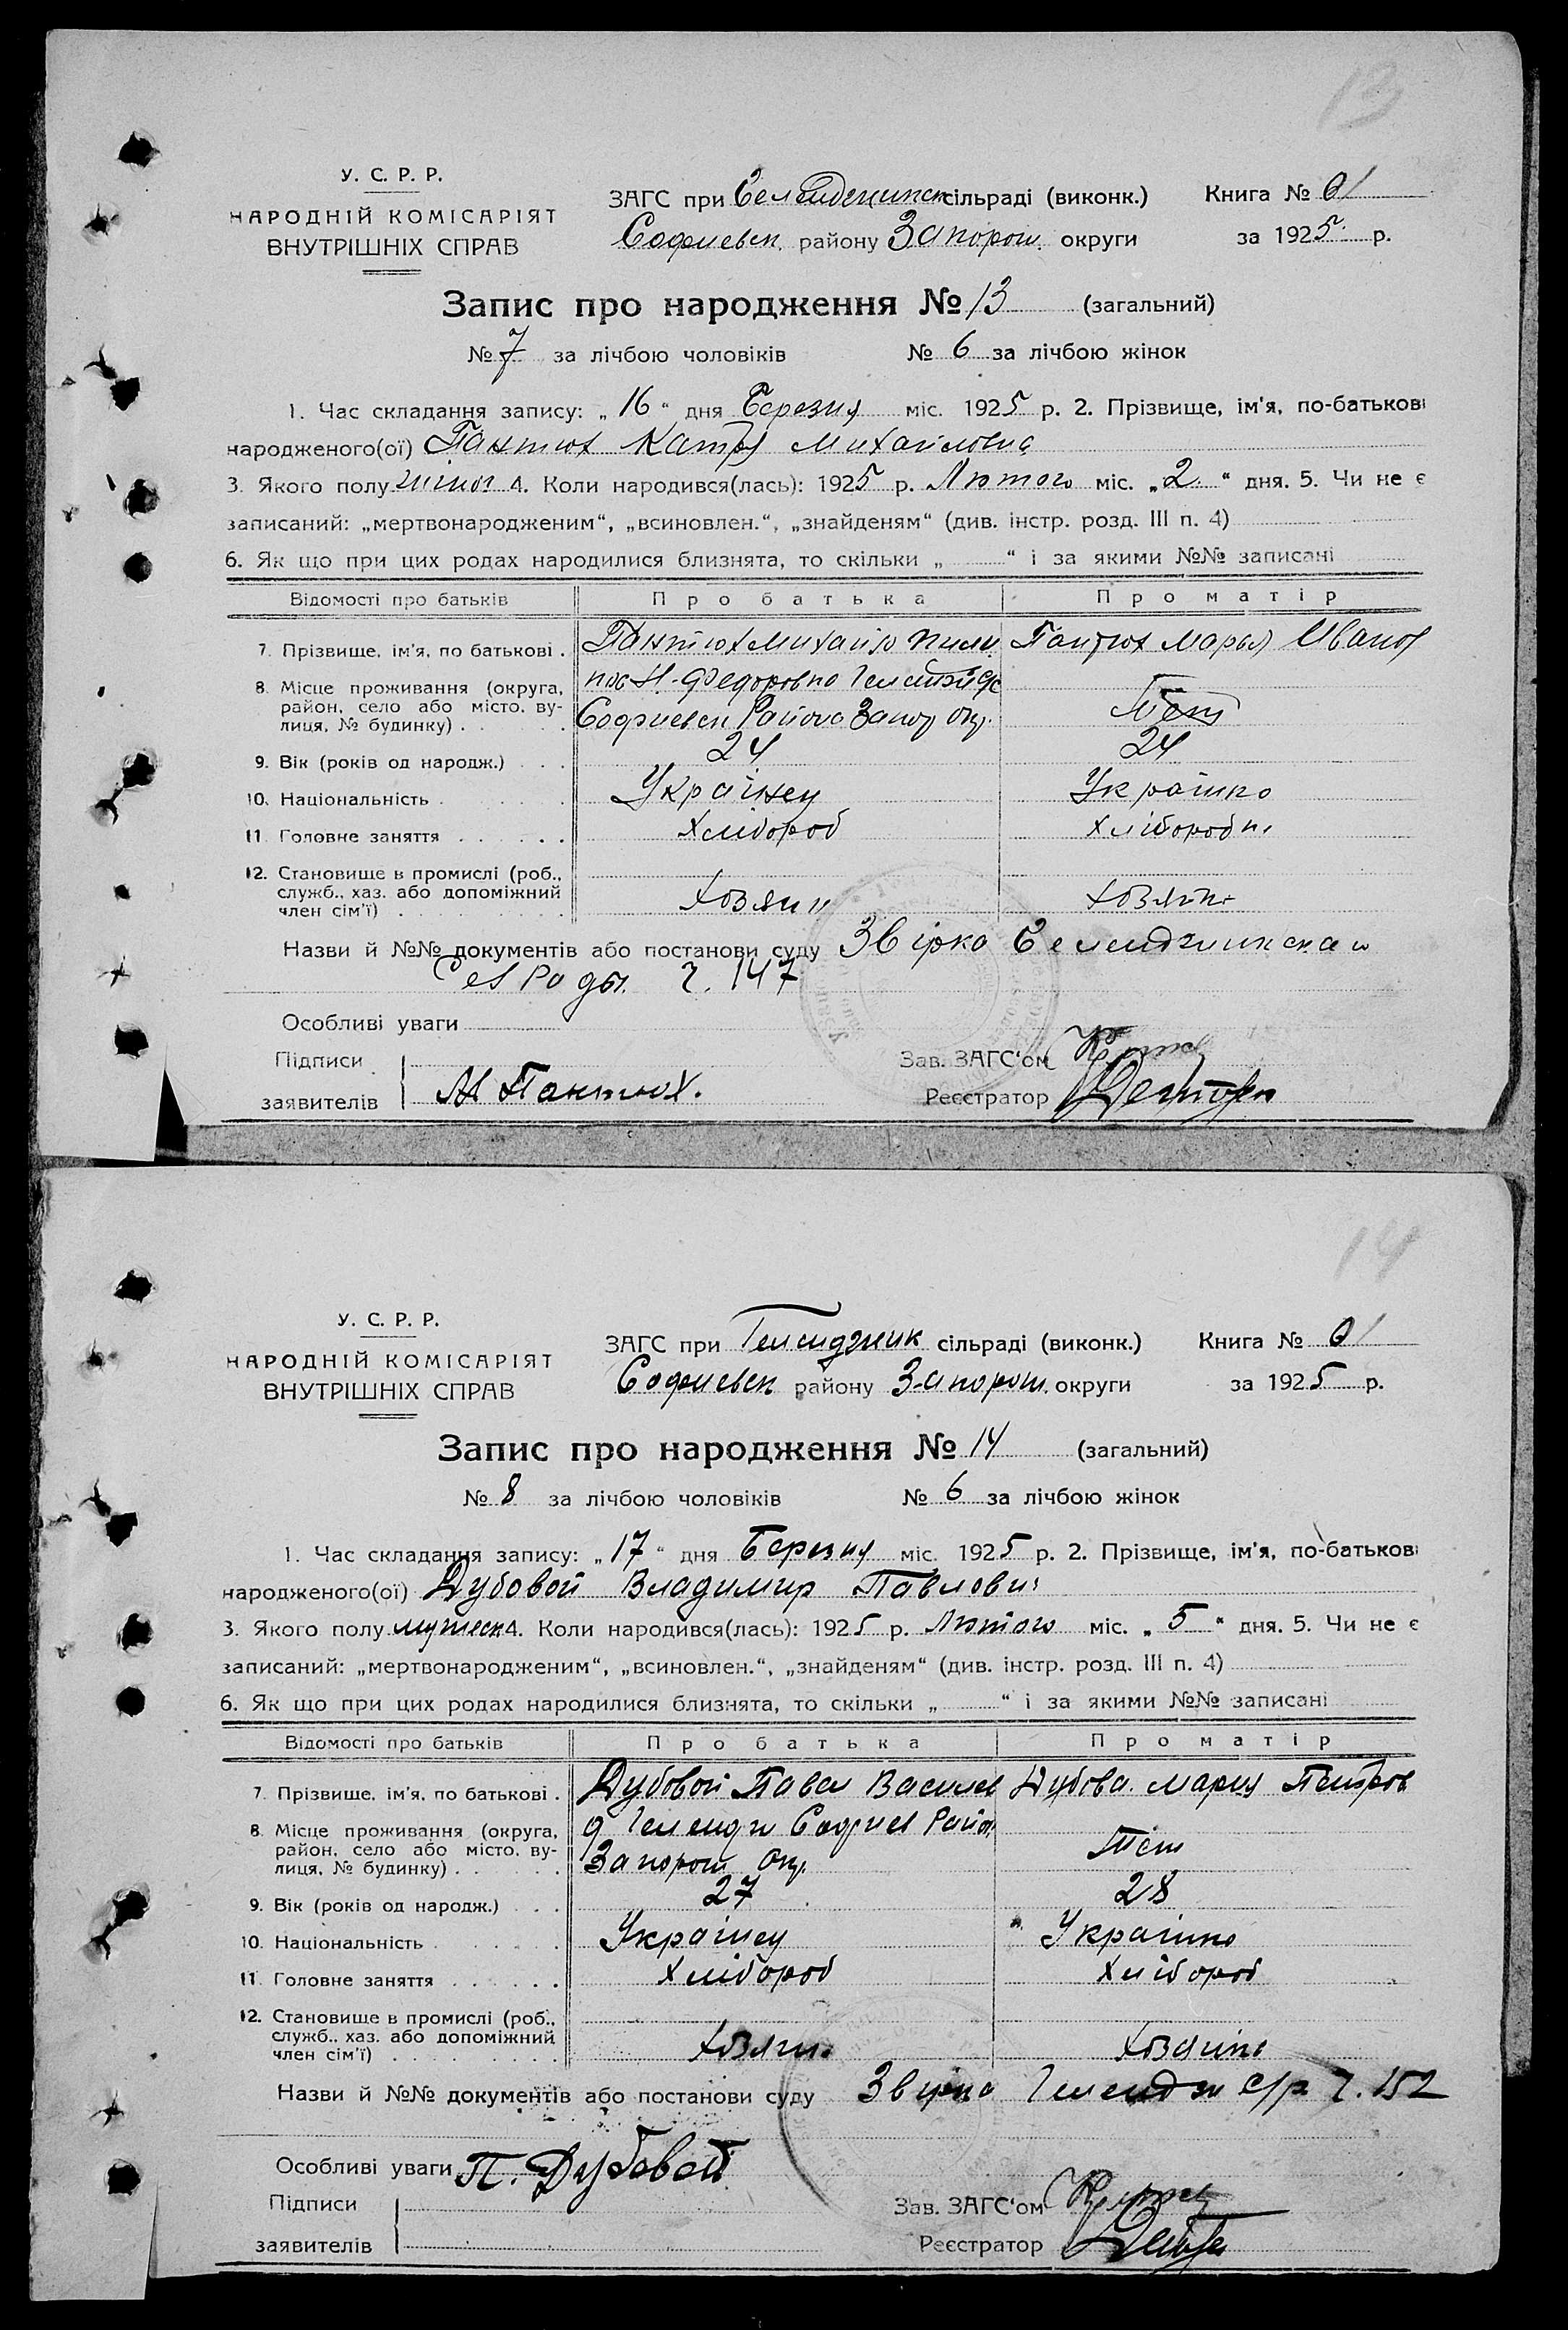 13
У. С. Р. Р.
НАРОДНІЙ КОМІСАРІЯТ
ВНУТРІШНІХ СПРАВ
ЗАГС при сільраді (виконк.) Книга № 01
Софиевск. району Запорож. округи за 1925 р.
Запис про народження № 13 (загальний)
№ 7 за лічбою чоловіків № 6 за лічбою жінок
1. Час складання запису: „16“ дня Березня міс. 1925 р. 2. Прізвище, ім'я, по-батькові
народженого(ої) Пантюх Катря Михайловна
3. Якого полу жіноч 4. Коли народився(лась): 1925 р. Лютого міс. „2“ дня. 5. Чи не є
записаний: „мертвонародженим“, „всиновлен.“, „знайденям“ (див. інстр. розд. III п. 4)
6. Як що при цих родах народилися близнята, то скільки „ “ і за якими №№ записані
Відомості про батьків Про батька Про матір
7. Прізвище, ім'я, по батькові . Пантюх Михайло Пантюх Марья Иванов
8. Місце проживання (округа,
район, село або місто, ву-
лиця, № будинку) . Софиевск Района Запор окр. Тет
9. Вік (років од народж.) 24 24
10. Національність Українец Українка
11. Головне заняття Хлібороб Хлібороб
12. Становище в промислі (роб.,
служб., хаз. або допоміжний
член сім'ї) Хозяин Хозяйка
Назви й №№ документів або постанови суду Звірка
Сельрады ч. 147
Особливі уваги
Підписи
заявителів М Пантюх.
Зав. ЗАГС'ом
Реєстратор
14
У. С. Р. Р.
НАРОДНІЙ КОМІСАРІЯТ
ВНУТРІШНІХ СПРАВ
ЗАГС при Геленджик сільраді (виконк.) Книга № 01
Софиевск району Запорож. округи за 1925 р.
Запис про народження № 14 (загальний)
№ 8 за лічбою чоловіків № 6 за лічбою жінок
1. Час складання запису: „17“ дня Березня міс. 1925 р. 2. Прізвище, ім'я, по-батькові
народженого(ої) Дубовой Владимир Павлович
3. Якого полу мужеск 4. Коли народився(лась): 1925 р. Лютого міс. „5“ дня. 5. Чи не є
записаний: „мертвонародженим“, „всиновлен.“, „знайденям“ (див. інстр. розд. III п. 4)
6. Як що при цих родах народилися близнята, то скільки „ “ і за якими №№ записані
Відомості про батьків Про батька Про матір
7. Прізвище, ім'я, по батькові . Дубовой Павел Василев Дубова Мария Петров
8. Місце проживання (округа, Гелендж Софиев Район
район, село або місто, ву-
лиця, № будинку) . Запорож Окр. Тет
9. Вік (років од народж.) 27 28
10. Національність Українец Українка
11. Головне заняття Хлібороб Хлібороб
12. Становище в промислі (роб.,
служб., хаз. або допоміжний
член сім'ї) Хозяин Хозяйка
Назви й №№ документів або постанови суду Звірка Гелендж с/р ч. 152
Особливі уваги П. Дубовой
Підписи
заявителів
Зав. ЗАГС'ом
Реєстратор